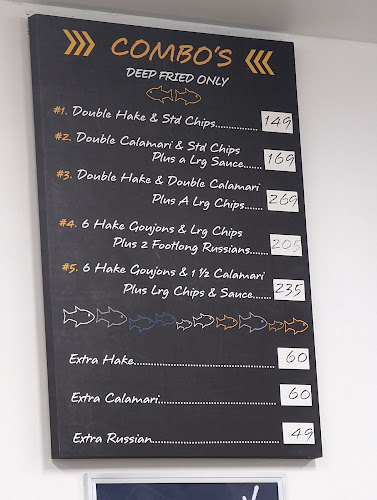 COMBO'S
DEEP FRIED ONLY
#1. Double Hake & Std Chips............... 149
#2. Double Calamari & Std Chips
Plus a Lrg Sauce....... 169
#3. Double Hake & Double Calamari
Plus A Lrg Chips....... 269
#4. 6 Hake Goujons & Lrg Chips
Plus 2 Footlong Russians....... 205
#5. 6 Hake Goujons & 1 ½ Calamari
Plus Lrg Chips & Sauce....... 235
Extra Hake....................................... 60
Extra Calamari................................ 60
Extra Russian.................................. 49